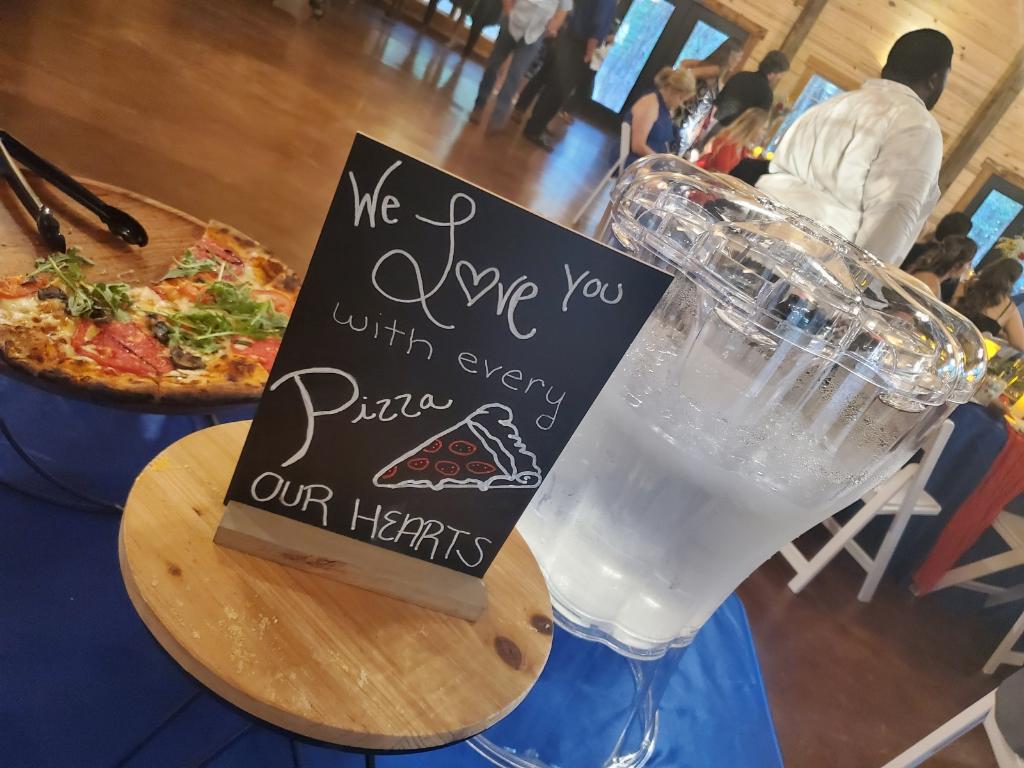 We Love You
with every
Pizza
OUR HEARTS